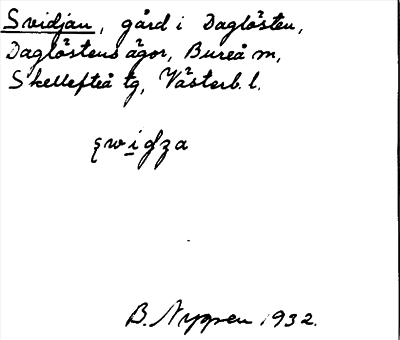 Svidjan, gård i Daglösten,
Daglöstens ägor, Bureå m,
Skellefteå tg, Västerb. l.
B. Nygren 1932.